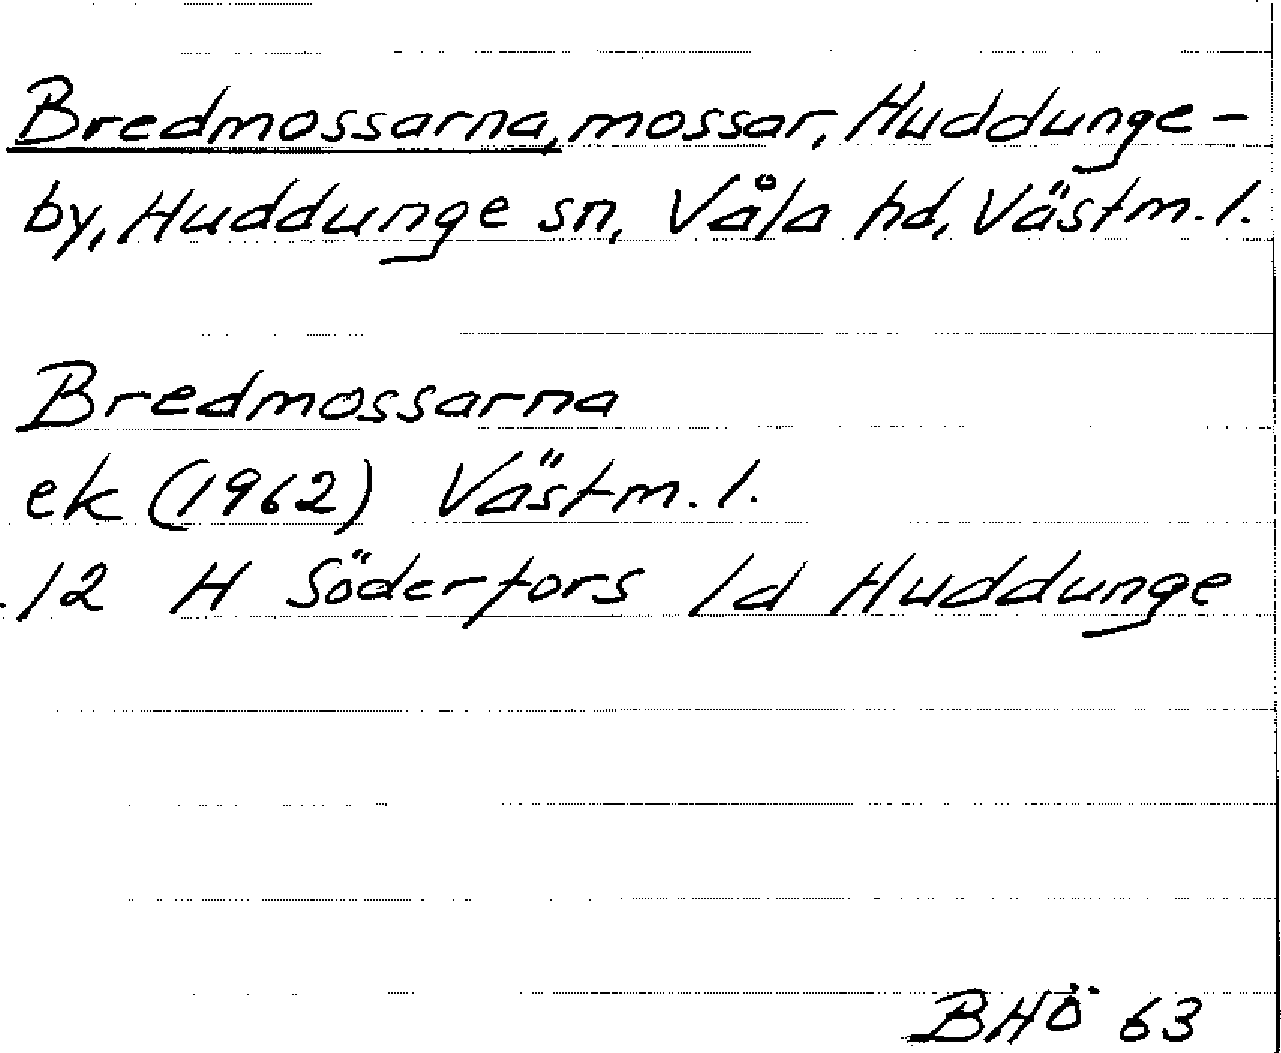 Bredmossarna, mossar, Huddunge-
by, Huddunge sn, Våla hd, Västm. l.
Bredmossarna
ek (1962) Västm. l.
12 H Söderfors 1d Huddunge
BHÖ 63